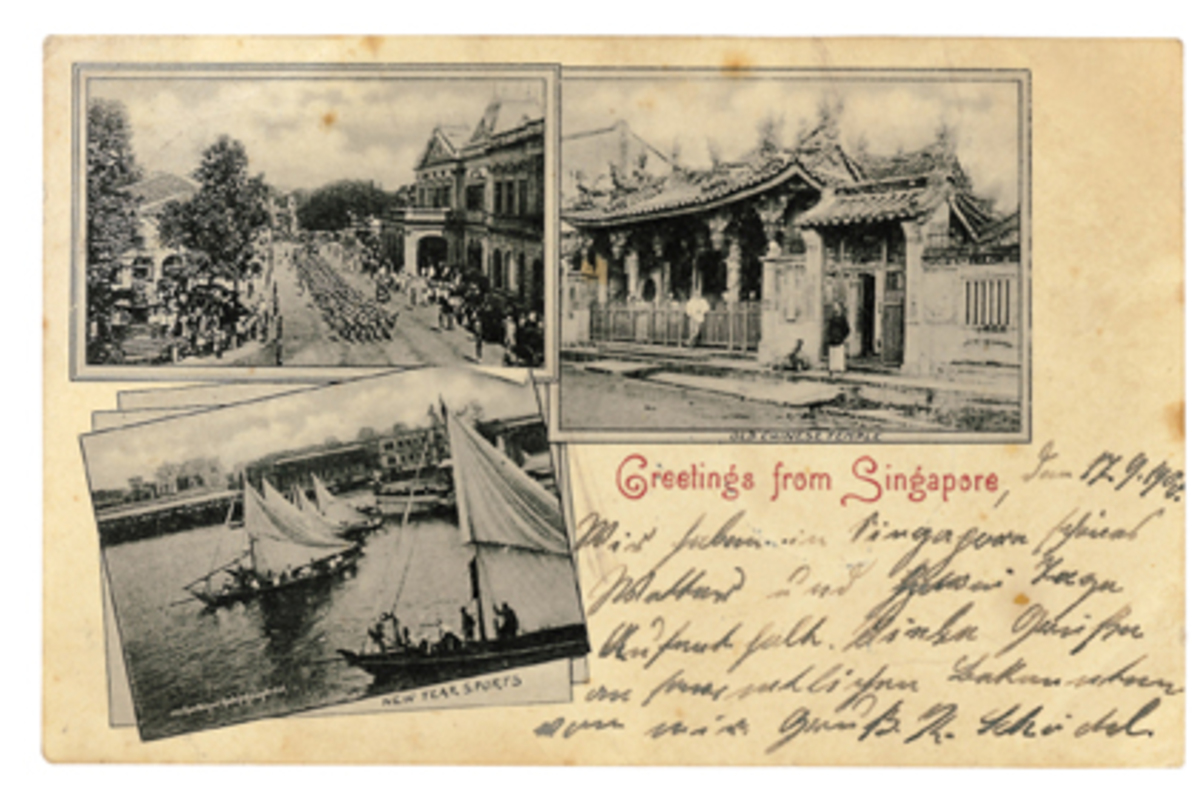 OLD CHINESE TEMPLE
Greetings from Singapore, den 17. 9.
Wir haben in Singapore schönes
Wetter und zwei Tage
Aufenthalt. Grüße
an Bekannten
von mir Gruß
NEW YEAR SPORTS